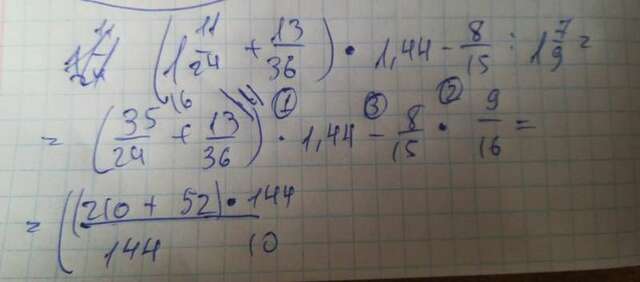 (1 11/24 + 13/36) • 1,44 - 8/15 : 1 7/9 =
= (35/24 + 13/36) • 1,44 - 8/15 • 9/16 =
= (((210 + 52) • 144 / 144 10